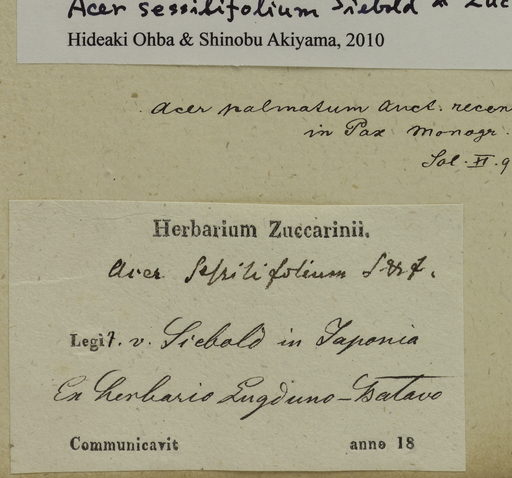 Acer sessilifolium Siebold & Zuc
Hideaki Ohba & Shinobu Akiyama, 2010
Acer palmatum Auct. recen
in Pax Monogr.
Herbarium Zuccarinii.
Acer sessilifolium S&Z.
Legit v. Siebold in Japonia
Ex herbario Lugduno-Batavo
Communicavit anno 18